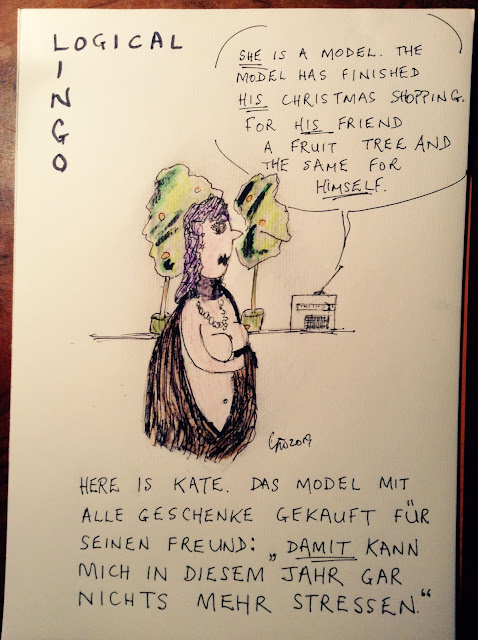 LOGICAL
LINGO
SHE IS A MODEL. THE
MODEL HAS FINISHED
HIS CHRISTMAS SHOPPING.
FOR HIS FRIEND
A FRUIT TREE AND
THE SAME FOR
HIMSELF.
2019
HERE IS KATE. DAS MODEL MIT
ALLE GESCHENKE GEKAUFT FÜR
SEINEN FREUND: „DAMIT KANN
MICH IN DIESEM JAHR GAR
NICHTS MEHR STRESSEN."